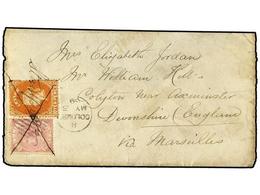 Mrs Elizabeth Jordan
Mr William Hill
Colyton Near Axminster
Devonshire (England)
via Marseilles
COLOMBO
MY